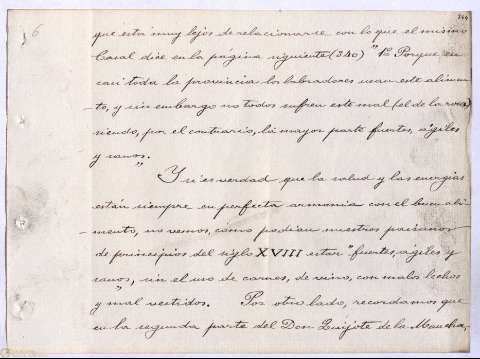 6
que está muy lejos de relacionarse con lo que el mismo
Casal dice en la página siguiente (340) "1º Porque en
casi toda la provincia los labradores usan este alimen-
-to, y sin embargo no todos sufren este mal (el de la rosa)
siendo, por el contrario, la mayor parte fuertes, ágiles
y sanos."
Y si es verdad que la salud y las energías
están siempre en perfecta armonía con el buen ali-
mento, no vemos, cómo podían nuestros paisanos
de principios del siglo XVIII estar "fuertes, ágiles y
sanos", sin el uso de carnes, de vino, con malos lechos
y "mal vestidos. Por otro lado, recordamos que
en la segunda parte del Don Quijote de la Mancha,